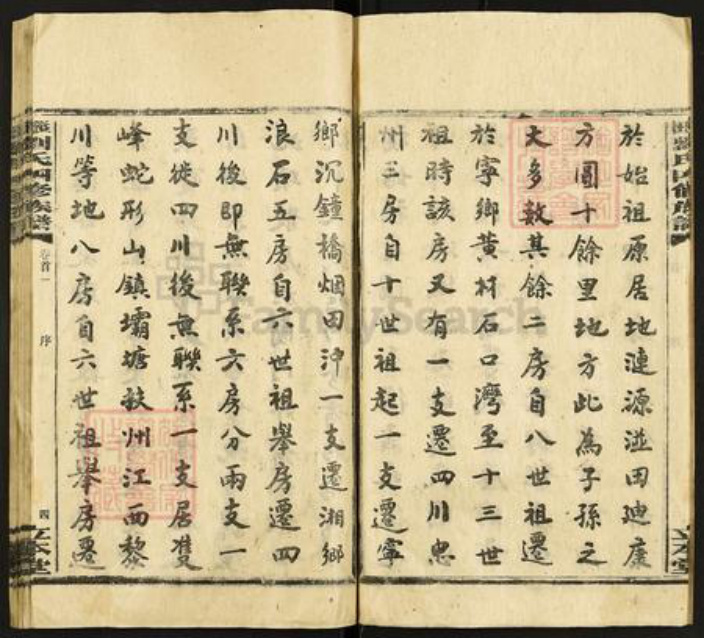 於始祖原居地漣源溢田迪康
方圓十餘里地方此為子孫之
大多數其餘二房自八世祖遷
於寧鄉黃材石口灣至十三世
祖時該房又有一支遷四川忠
州三房自十世祖起一支遷寧
鄉沉鐘橋烟田沖一支遷湘鄉
浪石五房自六世祖舉房遷四
川後即無聯系六房分兩支一
支徙四川後無聯系一支居雙
峰蛇形山鎮壩塘欽州江西黎
川等地八房自六世祖舉房遷
劉氏四修族譜
卷首一
序
四
立本堂
FamilySearch